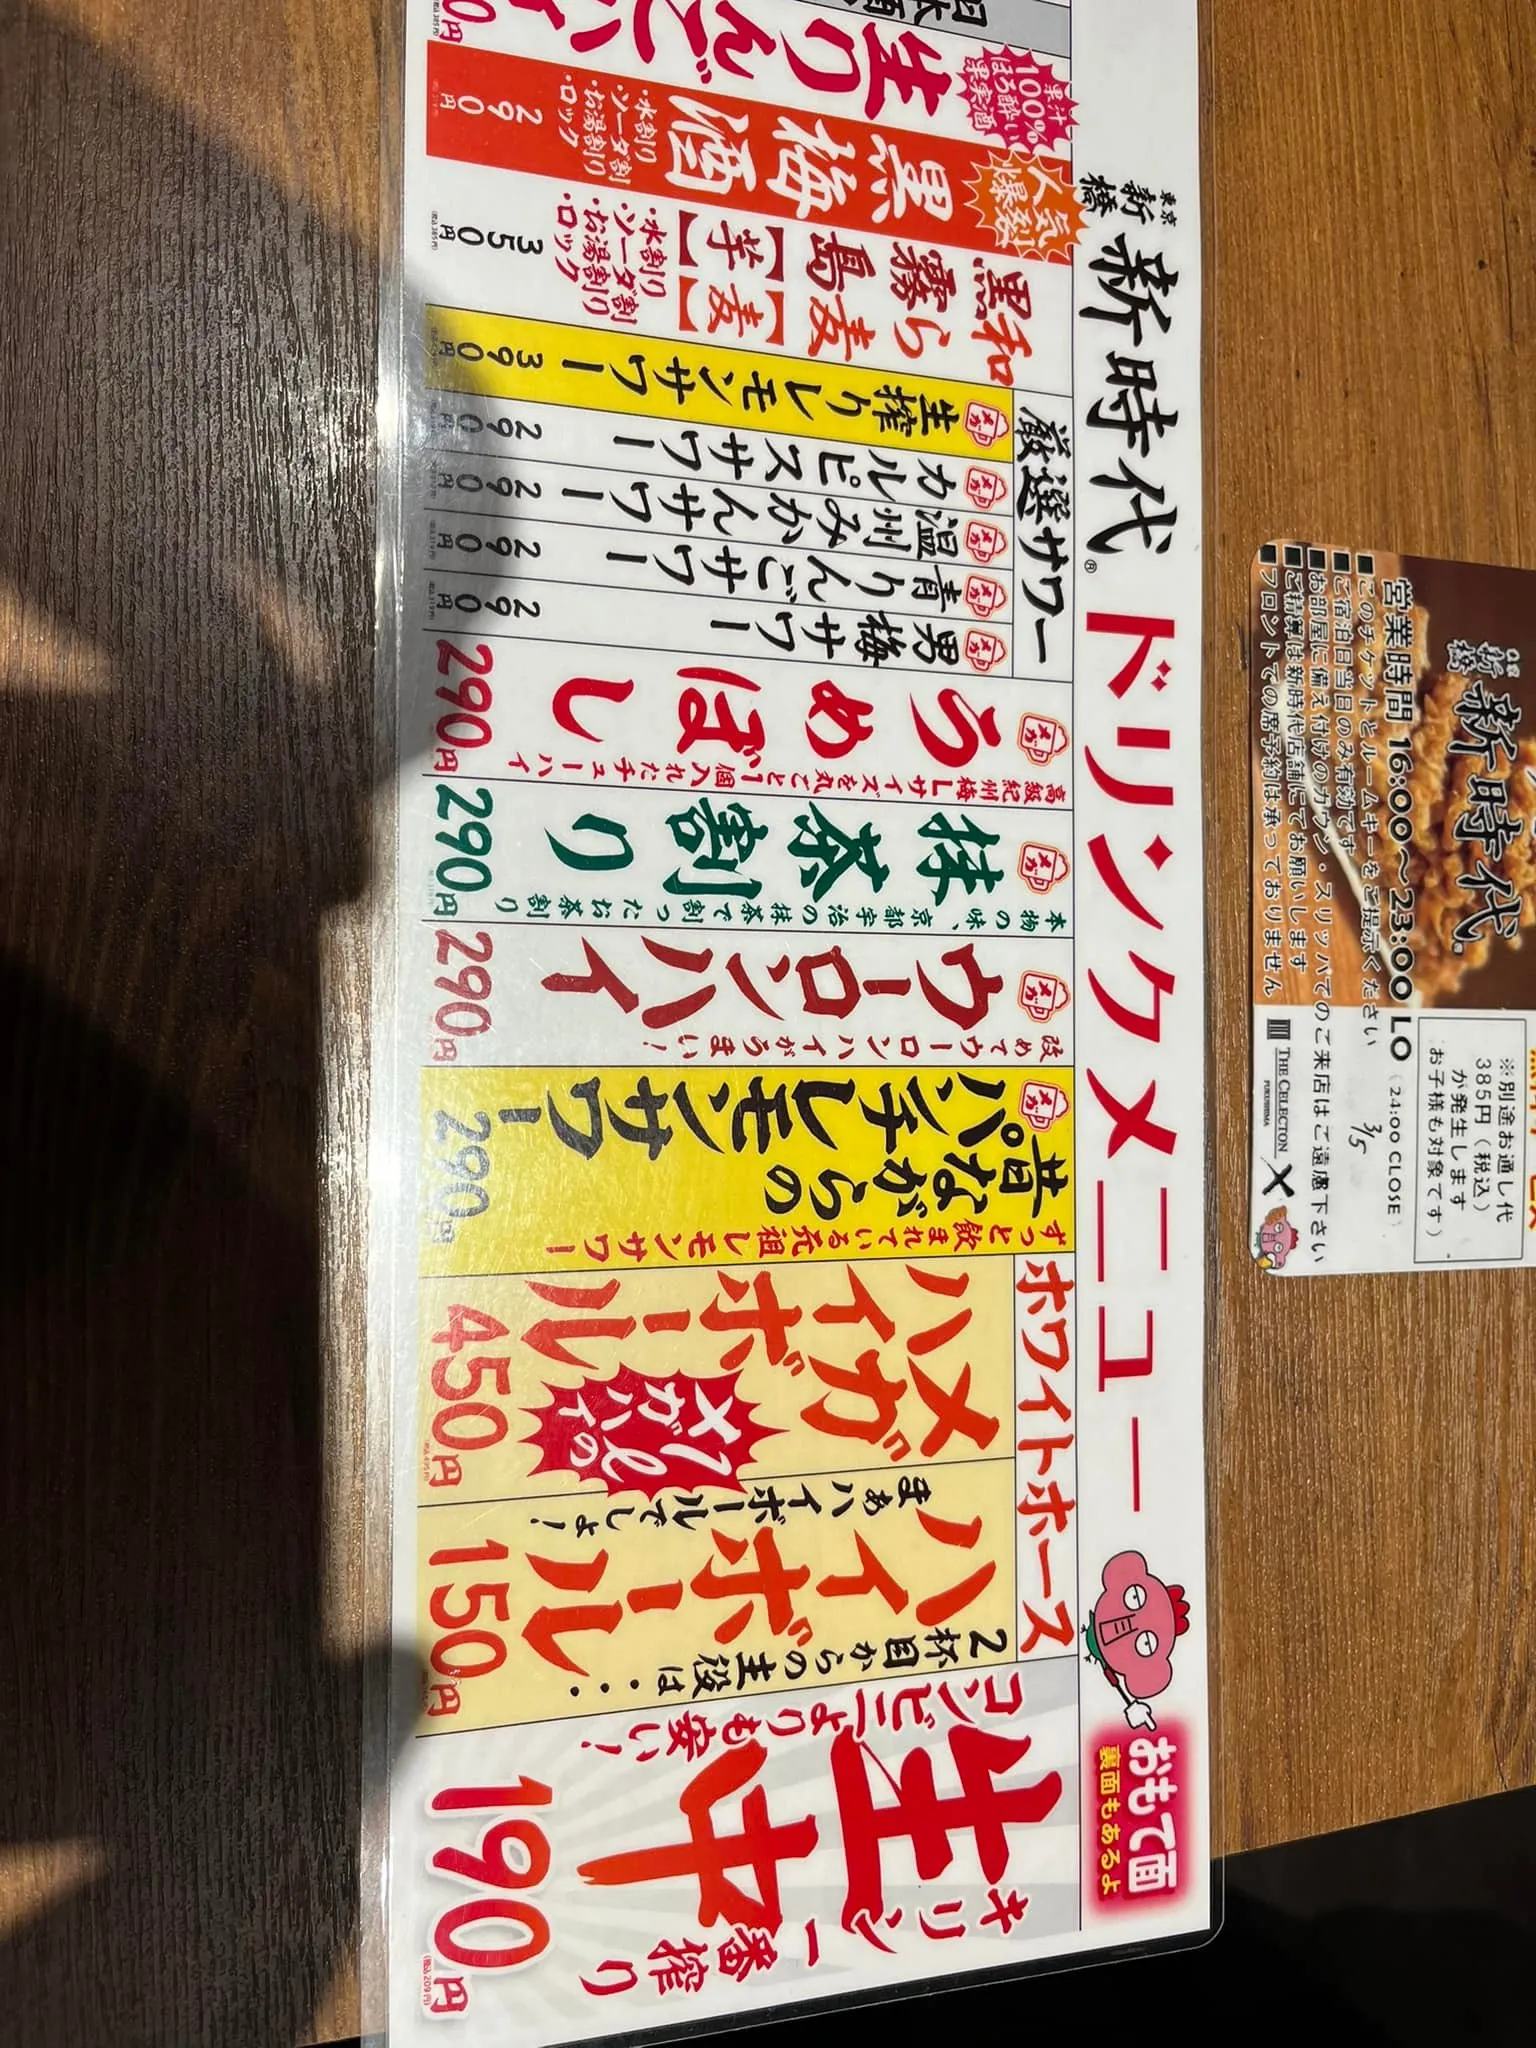 東京
新橋
新時代®
ドリンクメニュー
おもて面
裏面もあるよ
コンビニよりも安い!
生中
キリン一番搾り
190円
(税込209円)
ホワイトホース
2杯目からの主役は・・・
ハイボール
まぁハイボールでしょ!
150円
メガ
ハイボール
1ℓの
メガハイ
450円
昔ながらの
パンチレモンサワー
ずっと飲まれている元祖レモンサワー
290円
メガ
ウーロンハイ
改めてウーロンハイがうまい!
290円
メガ
抹茶割り
本物の味、京都宇治の抹茶で割ったお茶割り
290円
メガ
うめぼし
高級紀州梅Lサイズを丸ごと1個入れたチューハイ
290円
メガ
厳選サワー
男梅サワー
290円
メガ
青りんごサワー
290円
メガ
温州みかんサワー
290円
メガ
カルピスサワー
290
メガ
生搾りレモンサワー
390円
メガ
和ら麦【麦】
黒霧島【芋】
・水割り
・ソーダ割
・お湯割り
・ロック
350円
(税込385円)
人気爆裂
黒梅酒
・水割り
・ソーダ割
・お湯割り
・ロック
290円
果汁
100%
ほろ酔い
果実酒
生りんごハイ
0円
(税込385円)
日本酒
新橋
新時代®
営業時間 16:00〜23:00 LO (24:00 CLOSE)
■このチケットとルームキーをご提示ください
■ご宿泊日当日のみ有効です
■お部屋に備え付けのガウン・スリッパでのご来店はご遠慮下さい
■ご精算は新時代店舗にてお願いします
■フロントでの席予約は承っておりません
3/5
※別途お通し代
385円(税込)
が発生します
お子様も対象です)
THE CELECTON
FUKUSHIMA